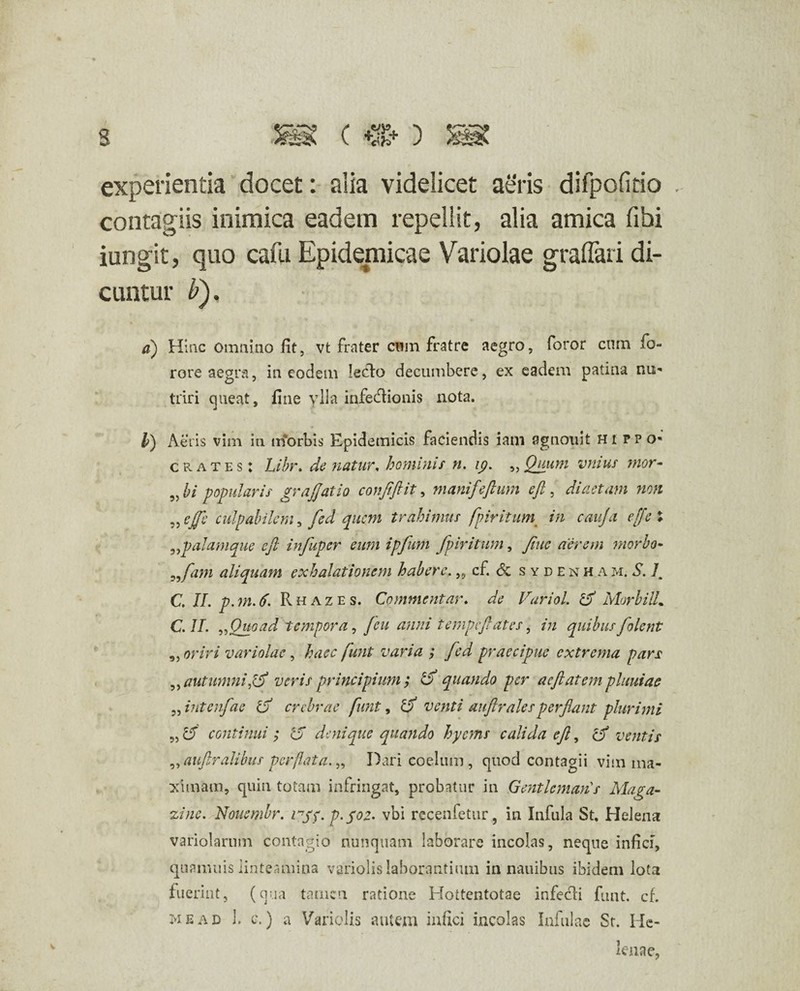 8 ( ) 
experientia docet: alia videlicet aëris difpofitio
contagiis inimica eadem repellit, alia amica fibi
iungit, quo cafu Epidemicae Variolae graffari di-
cuntur b).
a) Hinc omnino fit, vt frater cum fratre aegro, foror cum fo-
rore aegra, in eodem lecto decumbere, ex eadem patina nu-
triri queat, fine vlla infectionis nota.
b) Aëris vim in morbis Epidemicis faciendis iam agnouit HIPPO-
CRATES: Libr. de natur. hominis n. 19. „Quum vnius mor-
„bi popularis graffatio confiftit, manifeftum eft, diaetam non
„effe culpabilem, fed quem trahimus fpiritum in caufa effe:
„palamque eft infuper eum ipfum fpiritum, fiue aërem morbo-
„fam aliquam exhalationem habere.„ cf. & SYDENHAM. S. I.
C. II. p. m. 6. RHAZES. Commentar. de Variol. & Morbill.
C. II. „Quoad tempora, feu anni tempeftates, in quibus folent
„oriri variolae, haec funt varia; fed praecipue extrema pars
„autumni, & veris principium; & quando per aeftatem pluuiae
„intenfae & crebrae funt, & venti auftrales perflant plurimi
„& continui; & denique quando hyems calida eft, & ventis
„auftralibus perflata.„ Dari coelum, quod contagii vim ma-
ximam, quin totam infringat, probatur in Gentleman's Maga-
zine. Nouembr. 1755. p. 502. vbi recenfetur, in Infula St. Helena
variolarum contagio nunquam laborare incolas, neque infici,
quamuis linteamina variolis laborantium in nauibus ibidem lota
fuerint, (qua tamen ratione Hottentotae infecti funt. cf.
MEAD l. c.) a Variolis autem infici incolas Infulae St. He-
lenae,